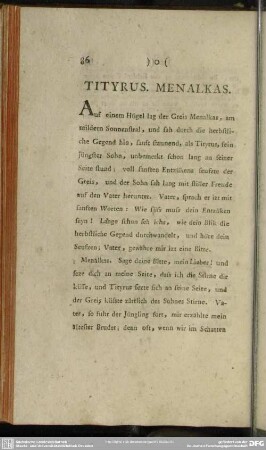 86 ) o (
TITYRUS. MENALKAS.
Auf einem Hügel lag der Greis Menalkas, am
mildern Sonnenstral, und sah durch die herbstli-
che Gegend hin, sanft staunend, als Tityrus, sein
jüngster Sohn, unbemerkt schon lang an seiner
Seite stund; voll sanften Entzükens seufzte der
Greis, und der Sohn sah lang mit stiller Freude
auf den Vater herunter. Vater, sprach er izt mit
sanften Worten: Wie süss muss dein Entzüken
seyn! Lange schon seh ichs, wie dein Blik die
herbstliche Gegend durchwandelt, und höre dein
Seufzen; Vater, gewähre mir izt eine Bitte.
Menalkas. Sage deine Bitte, mein Lieber! und
seze dich an meine Seite, dass ich die Stirne dir
küsse, und Tityrus sezte sich an seine Seite, und
der Greis küsste zärtlich des Sohnes Stirne. Va-
ter, so fuhr der Jüngling fort, mir erzählte mein
ältester Bruder; denn oft, wenn wir im Schatten